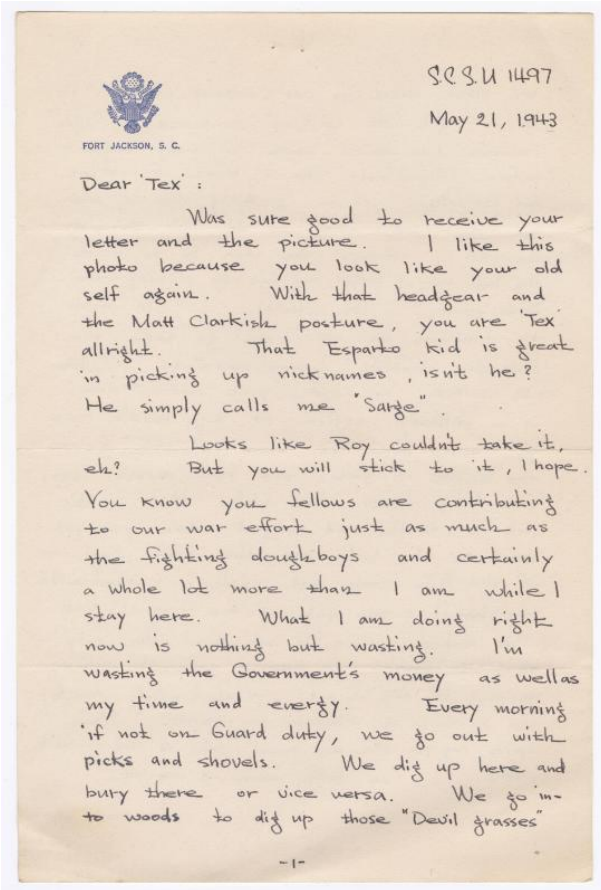 S.C.S.U 1497
May 21, 1943
FORT JACKSON, S. C.
Dear 'Tex' :
Was sure good to receive your
letter and the picture. I like this
photo because you look like your old
self again. With that headgear and
the Matt Clarkish posture, you are 'Tex'
allright. That Esparto kid is great
in picking up nicknames, isn't he?
He simply calls me "Sarge".
Looks like Roy couldn't take it,
eh? But you will stick to it, I hope.
You know you fellows are contributing
to our war effort just as much as
the fighting doughboys and certainly
a whole lot more than I am while I
stay here. What I am doing right
now is nothing but wasting. I'm
wasting the Government's money as well as
my time and energy. Every morning
if not on Guard duty, we go out with
picks and shovels. We dig up here and
bury there or vice versa. We go in-
to woods to dig up those "Devil grasses"
-1-